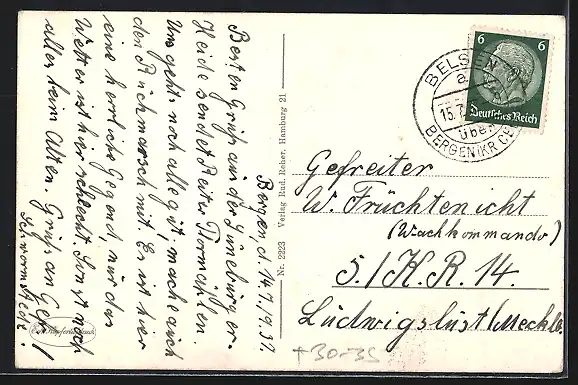 Bergen, d. 14.7.1937.
Besten Gruß aus der Lüneburger
Heide sendet Reiter Tormählen
Uns geht's noch alle gut, mache auch
den Rückmarsch mit. Es ist hier
eine herrliche Gegend, nur das
Wetter ist hier schlecht. Sonst noch
alles beim Alten. Gruß an Gefr.
Nr. 2223 Verlag Rud. Reher. Hamburg 21
6 6
Deutsches Reich
BELSEN
15.7.
über
BERGEN (KR. C
Gefreiter
W. Früchtenicht
(Wachkommando)
5./K.R. 14.
Ludwigslust/Meckl.
+30-35